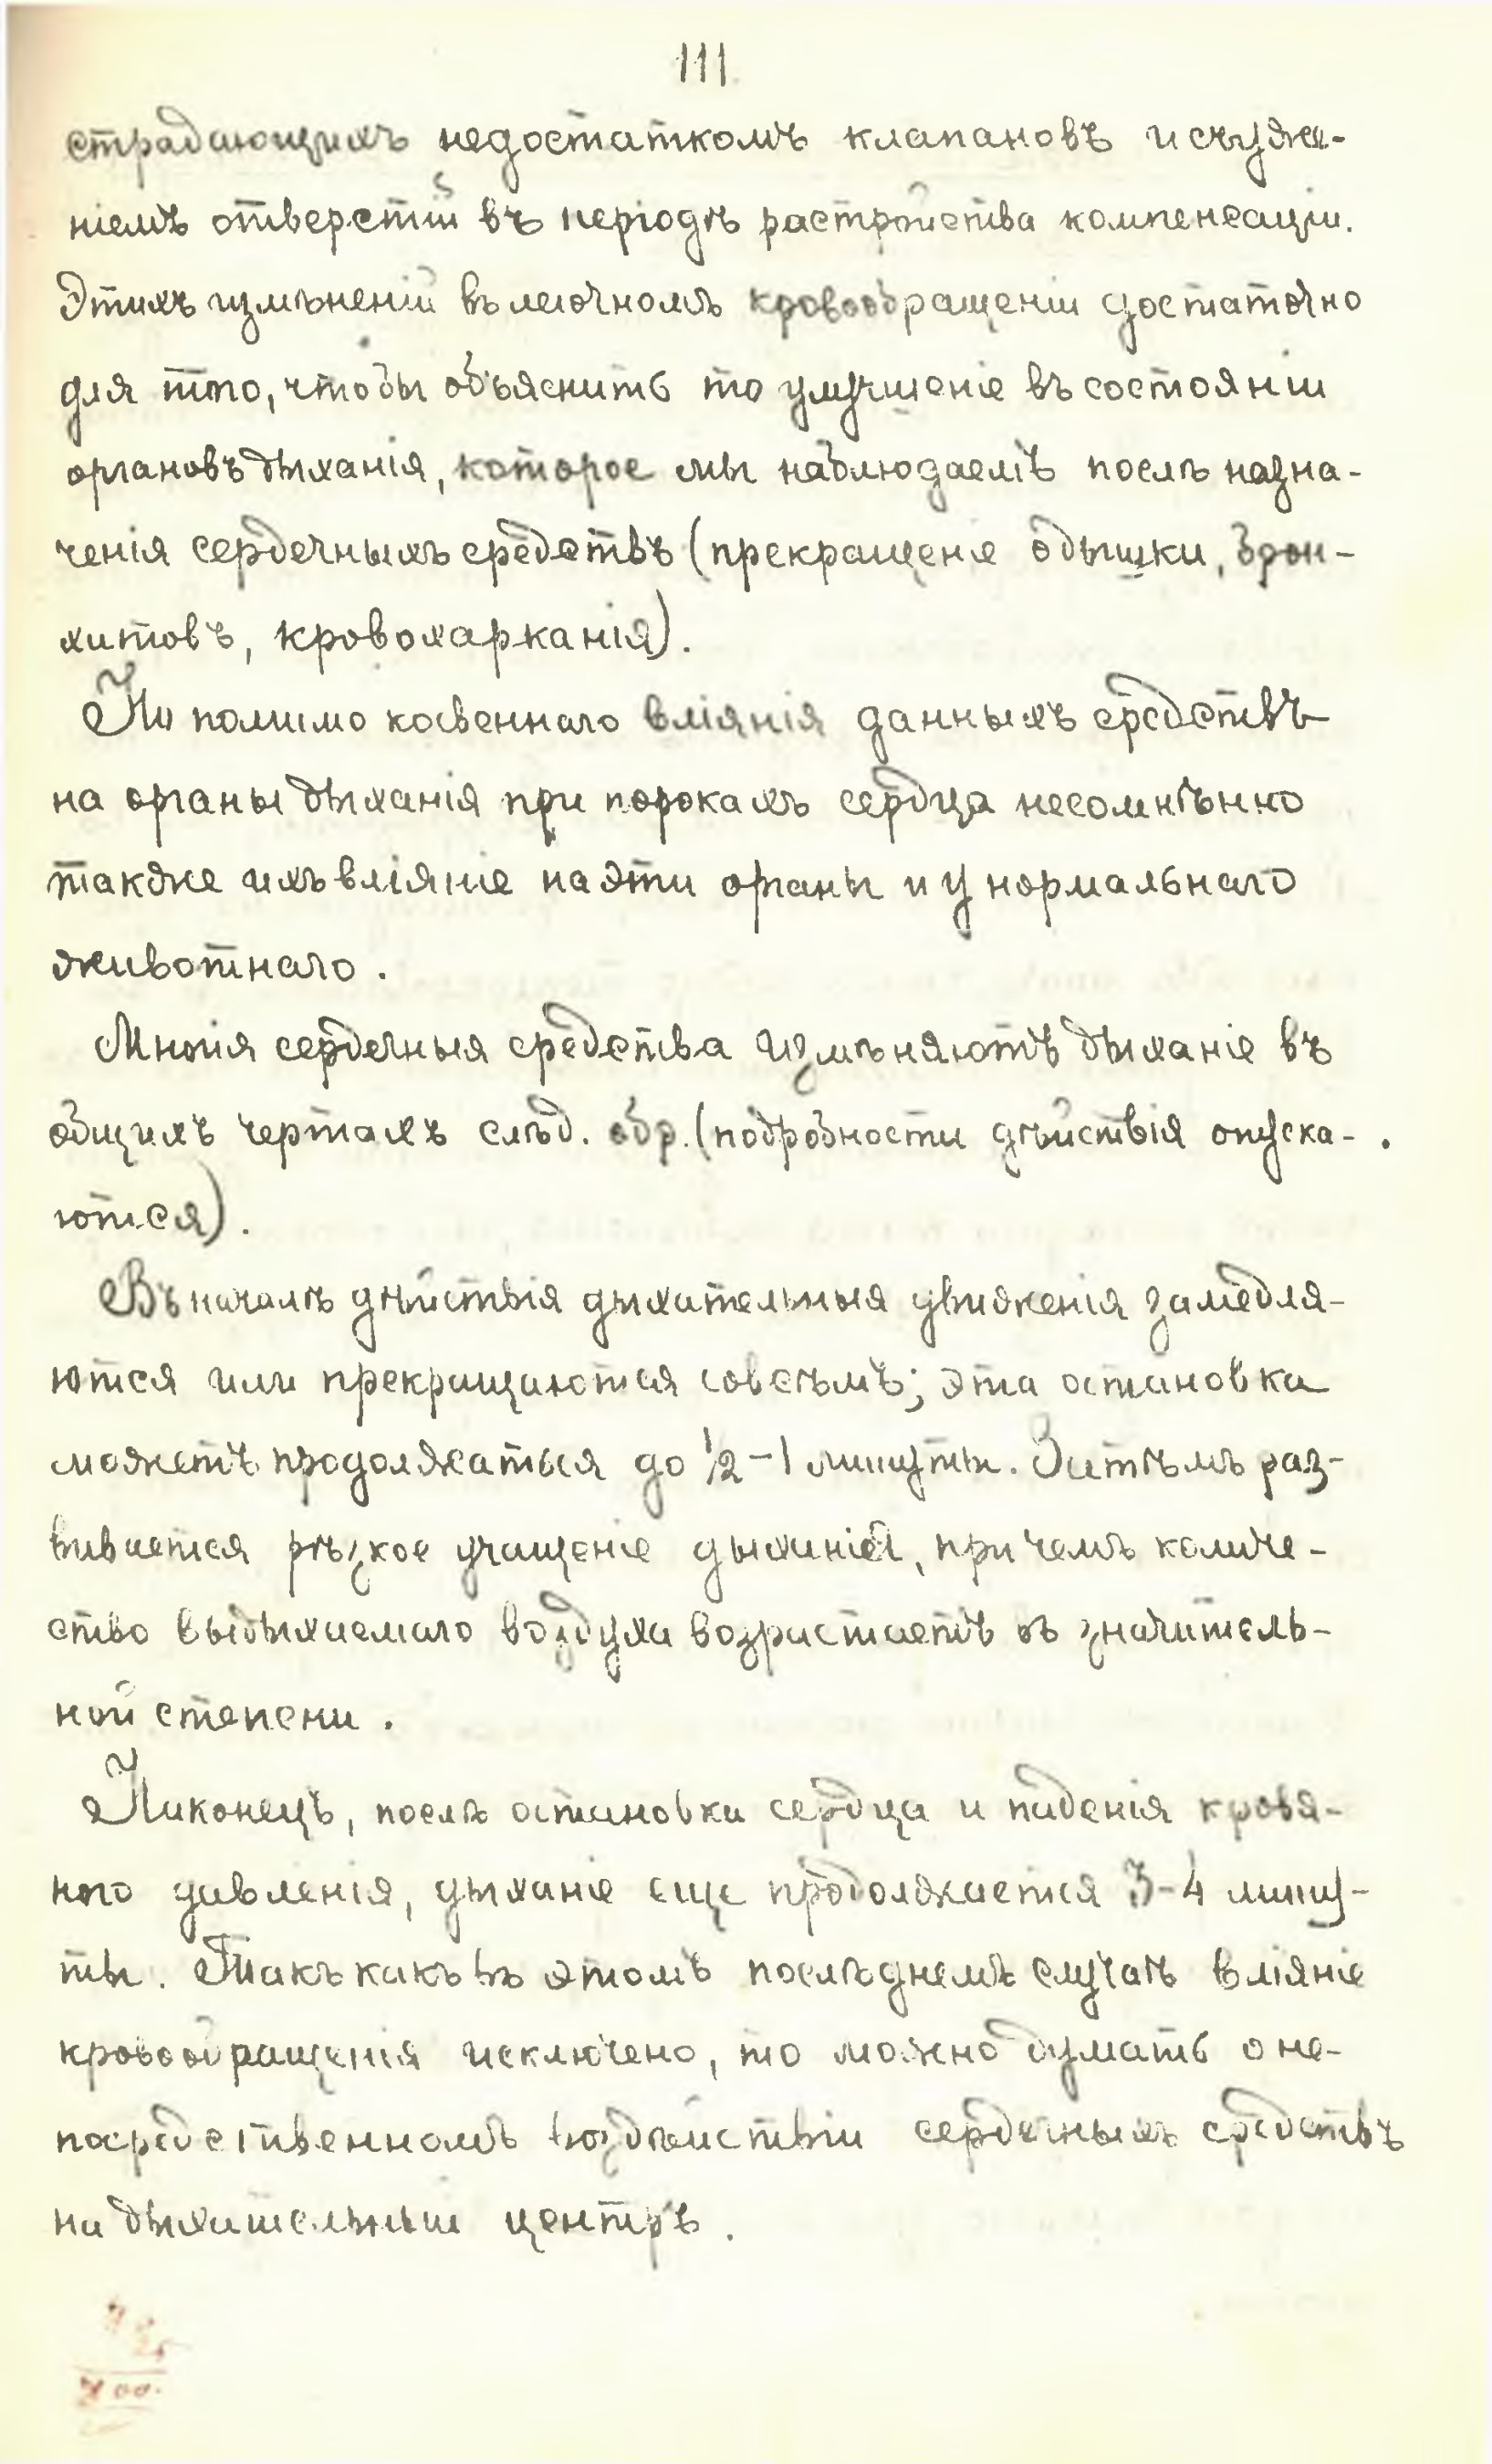 111
страдающихъ недостаткомъ клапановъ и съуже-
ніемъ отверстій въ періодѣ растройства компенсаціи.
Этихъ измѣненій въ легочномъ кровообращеніи достаточно
для того, чтобы объяснить то улучшеніе въ состояніи
органовъ дыханія, которое мы наблюдаемъ послѣ назна-
ченія сердечныхъ средствъ (прекращеніе одышки, брон-
хитовъ, кровохарканія).
Но помимо косвеннаго вліянія данныхъ средствъ
на органы дыханія при порокахъ сердца несомнѣнно
также ихъ вліяніе на эти органы и у нормальнаго
животнаго.
Многія сердечныя средства измѣняютъ дыханіе въ
общихъ чертахъ слѣд. обр. (подробности дѣйствія опуска-
ются).
Въ началѣ дѣйствія дыхательныя движенія замедля-
ются или прекращаются совсѣмъ; эта остановка
можетъ продолжаться до ½-1 минуты. Затѣмъ раз-
вивается рѣзкое учащеніе дыханій, при чемъ количе-
ство выдыхаемаго воздуха возрастаетъ въ значитель-
ной степени.
Наконецъ, послѣ остановки сердца и паденія кровя-
ного давленія, дыханіе еще продолжается 3-4 мину-
ты. Такъ какъ въ этомъ послѣднемъ случаѣ вліяніе
кровообращенія исключено, то можно думать о не-
посредственномъ воздѣйствіи сердечныхъ средствъ
на дыхательный центръ.